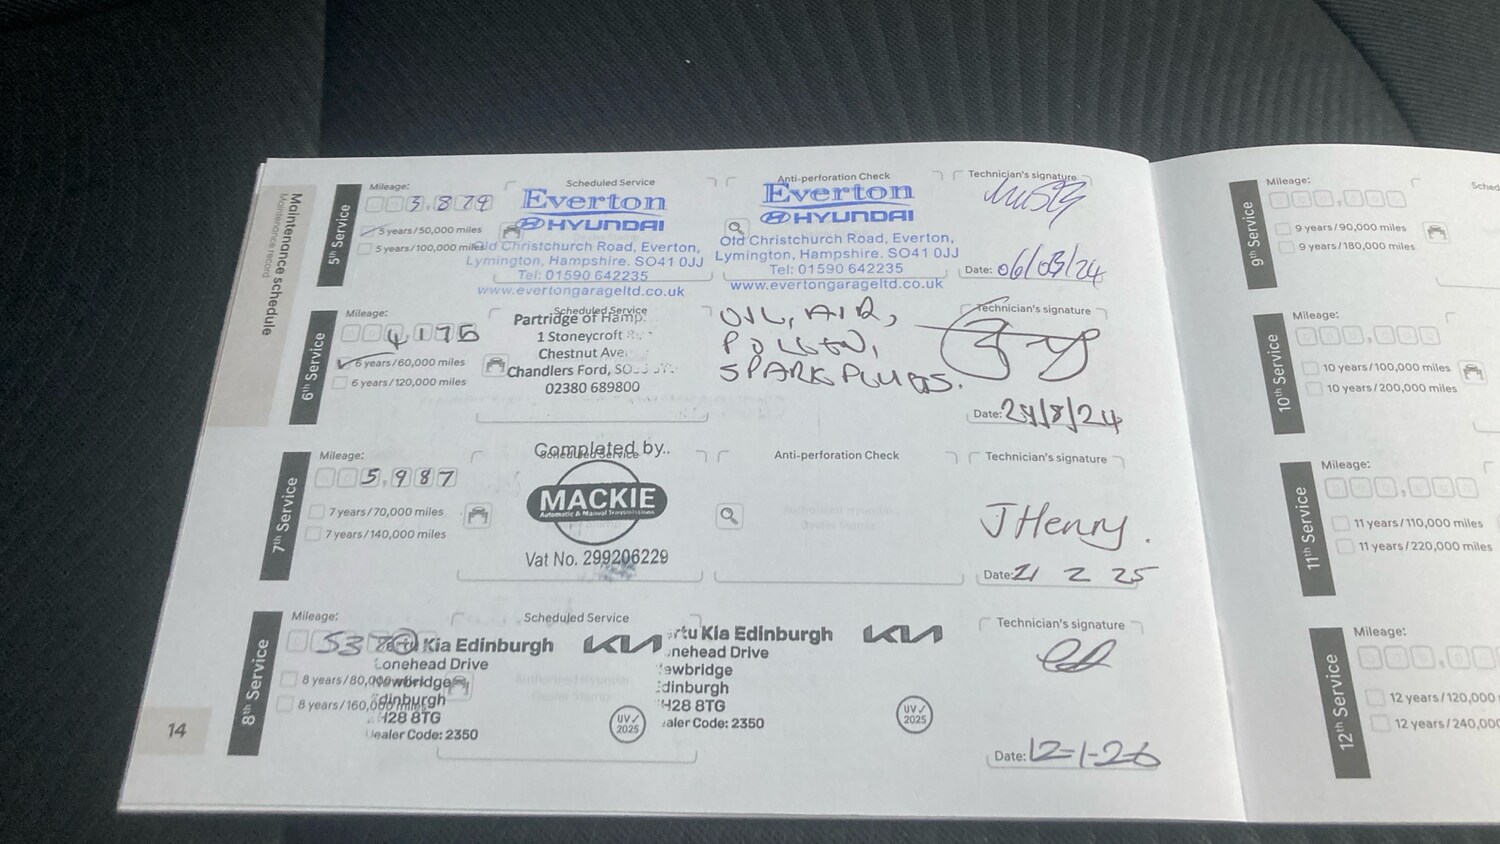 Maintenance schedule
Maintenance record
5th Service
Mileage:
3,879
5 years/50,000 miles
5 years/100,000 miles
Scheduled Service
Everton
HYUNDAI
Old Christchurch Road, Everton,
Lymington, Hampshire. SO41 0JJ
Tel: 01590 642235
www.evertongarageltd.co.uk
Anti-perforation Check
Everton
HYUNDAI
Old Christchurch Road, Everton,
Lymington, Hampshire. SO41 0JJ
Tel: 01590 642235
www.evertongarageltd.co.uk
Technician's signature
Date: 06/03/24
6th Service
Mileage:
4,175
6 years/60,000 miles
6 years/120,000 miles
Scheduled Service
Partridge of Hamp
1 Stoneycroft
Chestnut Ave
Chandlers Ford,
02380 689800
OIL, AIR,
POLLEN,
SPARK PLUGS.
Technician's signature
Date:
7th Service
Mileage:
5,987
7 years/70,000 miles
7 years/140,000 miles
Scheduled Service
Completed by..
MACKIE
Automatic & Manual Transmissions
Vat No. 299206229
Anti-perforation Check
Technician's signature
J Henry.
Date: 21 2 25
8th Service
Mileage:
8 years/80,000 miles
8 years/160,000 miles
Scheduled Service
Kia Edinburgh
KIA
Lonehead Drive
Newbridge
Edinburgh
H28 8TG
Dealer Code: 2350
UV✓
2025
rtu Kia Edinburgh
KIA
nehead Drive
ewbridge
dinburgh
H28 8TG
ealer Code: 2350
UV✓
2025
Technician's signature
Date: 12-1-26
14
9th Service
Mileage:
9 years/90,000 miles
9 years/180,000 miles
Sched
10th Service
Mileage:
10 years/100,000 miles
10 years/200,000 miles
11th Service
Mileage:
11 years/110,000 miles
11 years/220,000 miles
12th Service
Mileage:
12 years/120,000
12 years/240,000